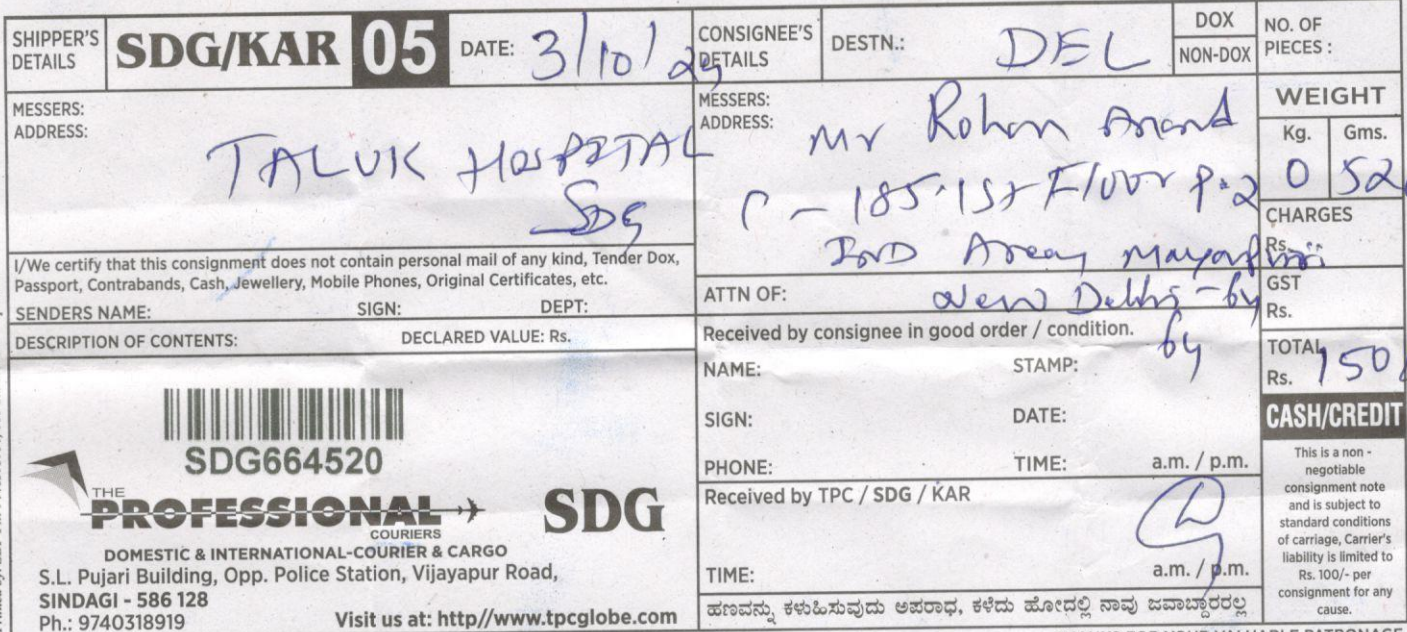 SHIPPER'S DETAILS
SDG/KAR 05
DATE: 3/10/
MESSERS:
ADDRESS:
TALUK HOSPITAL
SDG
I/We certify that this consignment does not contain personal mail of any kind, Tender Dox,
Passport, Contrabands, Cash, Jewellery, Mobile Phones, Original Certificates, etc.
SENDERS NAME: SIGN: DEPT:
DESCRIPTION OF CONTENTS: DECLARED VALUE: Rs.
SDG664520
THE
PROFESSIONAL
COURIERS
SDG
DOMESTIC & INTERNATIONAL-COURIER & CARGO
S.L. Pujari Building, Opp. Police Station, Vijayapur Road,
SINDAGI - 586 128
Ph.: 9740318919 Visit us at: http//www.tpcglobe.com
CONSIGNEE'S DETAILS
DESTN.: DEL
DOX
NON-DOX
MESSERS:
ADDRESS:
Mr Rohan Anand
C - 185 1st Floor P-2
IND Area Mayapuri
ATTN OF: New Delhi - 64
64
Received by consignee in good order / condition.
NAME: STAMP:
SIGN: DATE:
PHONE: TIME: a.m. / p.m.
Received by TPC / SDG / KAR
TIME: a.m. / p.m.
ಹಣವನ್ನು ಕಳುಹಿಸುವುದು ಅಪರಾಧ, ಕಳೆದು ಹೋದಲ್ಲಿ ನಾವು ಜವಾಬ್ದಾರರಲ್ಲ
NO. OF
PIECES :
WEIGHT
Kg. Gms.
0 52
CHARGES
Rs.
GST
Rs.
TOTAL
Rs. 150/
CASH/CREDIT
This is a non -
negotiable
consignment note
and is subject to
standard conditions
of carriage, Carrier's
liability is limited to
Rs. 100/- per
consignment for any
cause.